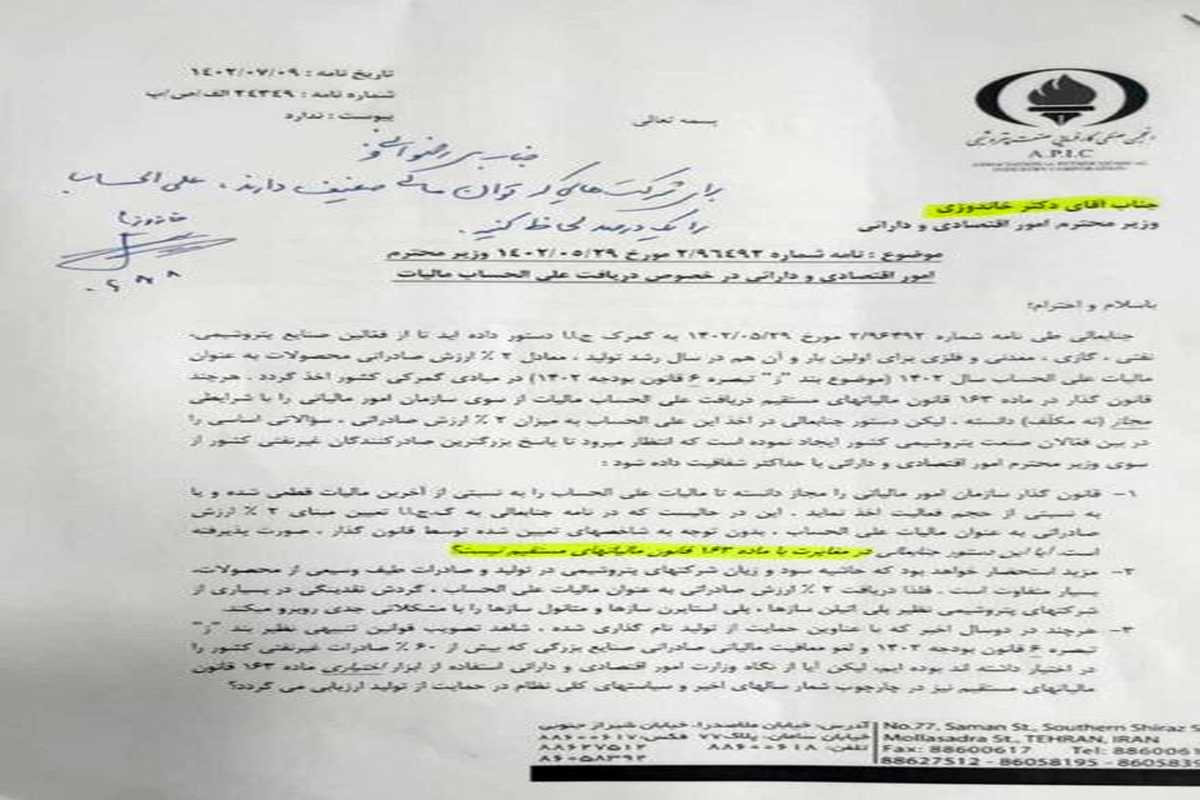 تاریخ نامه : ۱۴۰۲/۰۷/۰۹
شماره نامه : ۲۴۳۴۹ الف/ص/پ
پیوست : ندارد
بسمه تعالی
انجمن صنفی کارفرمایی صنعت پتروشیمی
A.P.I.C
ASSOCIATION OF PETROCHEMICAL
INDUSTRY CORPORATION
جناب
برای شرکت‌هایی که توان مالی ضعیف دارند، علی الحساب
را یک درصد لحاظ کنید.
جناب آقای دکتر خاندوزی
وزیر محترم امور اقتصادی و دارائی
موضوع : نامه شماره ۲/۹۶۴۹۲ مورخ ۱۴۰۲/۰۵/۲۹ وزیر محترم
امور اقتصادی و دارائی در خصوص دریافت علی الحساب مالیات
باسلام و احترام؛
جنابعالی طی نامه شماره ۲/۹۶۴۹۲ مورخ ۱۴۰۲/۰۵/۲۹ به گمرک ج.ا.ا دستور داده اید تا از فعالین صنایع پتروشیمی،
نفتی ، گازی ، معدنی و فلزی برای اولین بار و آن هم در سال رشد تولید ، معادل ۲ ٪ ارزش صادراتی محصولات به عنوان
مالیات علی الحساب سال ۱۴۰۲ (موضوع بند "ز" تبصره ۶ قانون بودجه ۱۴۰۲) در مبادی گمرکی کشور اخذ گردد . هرچند
قانون گذار در ماده ۱۶۳ قانون مالیاتهای مستقیم دریافت علی الحساب مالیات از سوی سازمان امور مالیاتی را با شرایطی
مجاز (نه مکلف) دانسته ، لیکن دستور جنابعالی در اخذ این علی الحساب به میزان ۲ ٪ ارزش صادراتی ، سؤالاتی اساسی را
در بین فعالان صنعت پتروشیمی کشور ایجاد نموده است که انتظار میرود تا پاسخ بزرگترین صادرکنندگان غیرنفتی کشور از
سوی وزیر محترم امور اقتصادی و دارائی با حداکثر شفافیت داده شود :
۱- قانون گذار سازمان امور مالیاتی را مجاز دانسته تا مالیات علی الحساب را به نسبتی از آخرین مالیات قطعی شده و یا
به نسبتی از حجم فعالیت اخذ نماید . این در حالیست که در نامه جنابعالی به گ.ج.ا.ا تعیین مبنای ۲ ٪ ارزش
صادراتی به عنوان مالیات علی الحساب ، بدون توجه به شاخصهای تعیین شده توسط قانون گذار ، صورت پذیرفته
است. آیا این دستور جنابعالی در مغایرت با ماده ۱۶۳ قانون مالیاتهای مستقیم نیست؟
۲- مزید استحضار خواهد بود که حاشیه سود و زیان شرکتهای پتروشیمی در تولید و صادرات طیف وسیعی از محصولات،
بسیار متفاوت است . فلذا دریافت ۲ ٪ ارزش صادراتی به عنوان مالیات علی الحساب ، گردش نقدینگی در بسیاری از
شرکتهای پتروشیمی نظیر پلی اتیلن سازها ، پلی استایرن سازها و متانول سازها را با مشکلاتی جدی روبرو میکند.
۳- هرچند در دوسال اخیر که با عناوین حمایت از تولید نام گذاری شده ، شاهد تصویب قوانین تنبیهی نظیر بند "ز"
تبصره ۶ قانون بودجه ۱۴۰۲ و لغو معافیت مالیاتی صادراتی صنایع بزرگی که بیش از ۶۰ ٪ صادرات غیرنفتی کشور را
در اختیار داشته اند بوده ایم، لیکن آیا از نگاه وزارت امور اقتصادی و دارائی استفاده از ابزار اختیاری ماده ۱۶۳ قانون
مالیاتهای مستقیم نیز در چارچوب شعار سالهای اخیر و سیاستهای کلی نظام در حمایت از تولید ارزیابی می گردد؟
آدرس: خیابان ملاصدرا، خیابان شیراز جنوبی
خیابان سامان، پلاک۷۷ فکس: ۸۸۶۰۰۶۱۷
تلفن: ۸۸۶۰۰۶۱۸ ۸۸۶۲۷۵۱۲
۸۶۰۵۸۳۹۲
No.77, Saman St., Southern Shiraz S
Mollasadra St., TEHRAN, IRAN
Fax: 88600617 Tel: 8860061
88627512 - 86058195 - 8605839